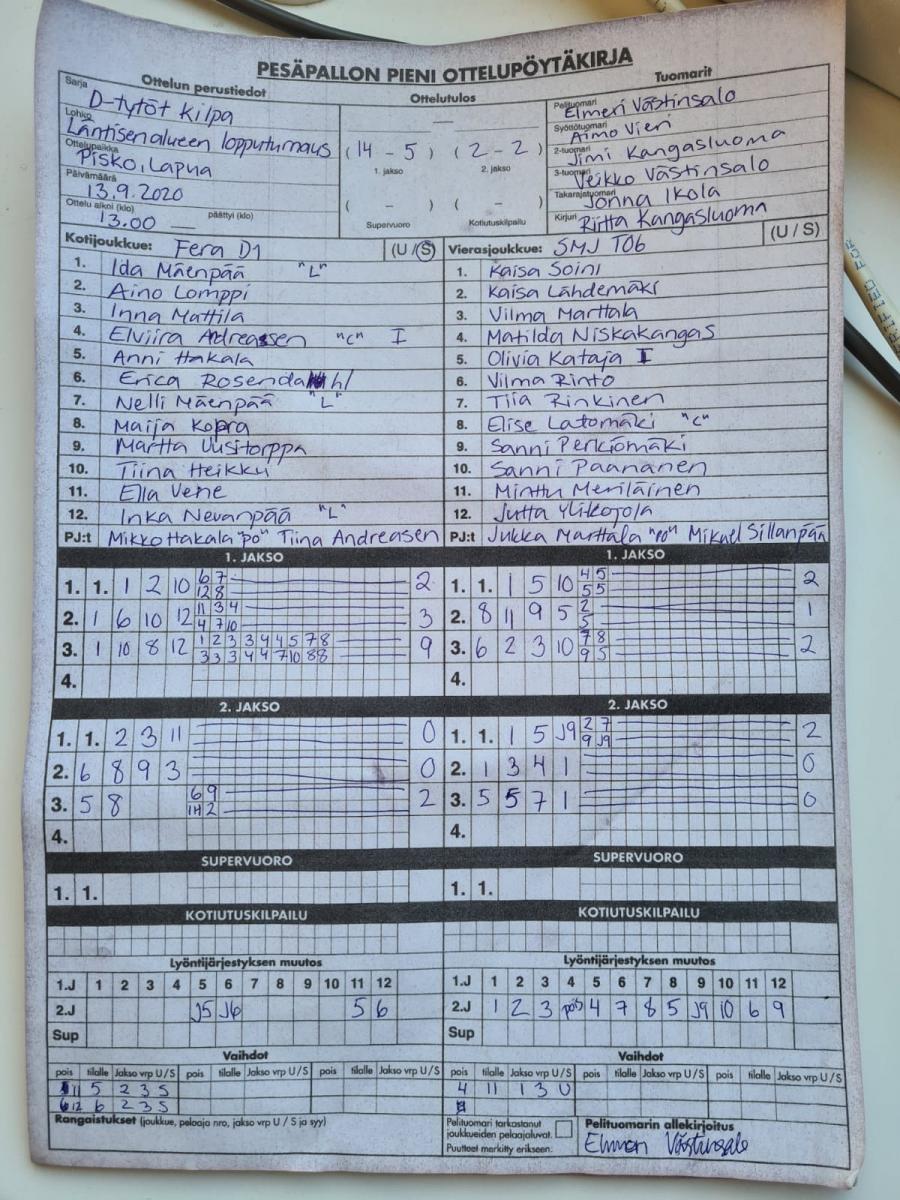 PESÄPALLON PIENI OTTELUPÖYTÄKIRJA
Ottelun perustiedot
Ottelutulos
Tuomarit
Sarja D-tytöt Kilpa
Lohko Läntisen alueen lopputurnaus
Ottelupaikka Pisko, Lapua
Päivämäärä 13.9.2020
Ottelu alkoi (klo) 13.00 päättyi (klo)
—
(14 - 5) (2 - 2)
1. jakso 2. jakso
( - ) ( - )
Supervuoro Kotiutuskilpailu
Pelituomari Elmeri Västinsalo
Syöttötuomari Aimo Vieri
2-tuomari Jimi Kangasluoma
3-tuomari Veikko Västinsalo
Takarajatuomari Jonna Ikola
Kirjuri Riitta Kangasluoma
Kotijoukkue: Fera D1 (U / S)
1. Ida Mäenpää "L"
2. Aino Lomppi
3. Inna Mattila
4. Elviira Andreasen "C" I
5. Anni Hakala
6. Erica Rosendahl
7. Nelli Mäenpää "L"
8. Maija Kopra
9. Martta Uusitorppa
10. Tiina Heikku
11. Ella Vene
12. Inka Nevanpää "L"
PJ:t Mikko Hakala "po" Tiina Andreasen
Vierasjoukkue: SMJ T06 (U / S)
1. Kaisa Soini
2. Kaisa Lähdemäki
3. Vilma Marttala
4. Matilda Niskakangas
5. Olivia Kataja I
6. Vilma Rinto
7. Tiia Rinkinen
8. Elise Latomäki "C"
9. Sanni Perkiömäki
10. Sanni Paananen
11. Minttu Meriläinen
12. Jutta Ylikojola
PJ:t Jukka Marttala "po" Mikael Sillanpää
1. JAKSO
1. 1. 1 2 10 6 7 2
12 8
2. 1 6 10 12 11 3 4 3
4 7 10
3. 1 10 8 12 1 2 3 3 4 4 5 7 8 9
3 3 3 4 4 7 10 8 8
4.
1. JAKSO
1. 1. 1 5 10 4 5 2
5 5
2. 8 11 9 5 2 1
5
3. 6 2 3 10 7 8 2
9 5
4.
2. JAKSO
1. 1. 2 3 11 0
2. 6 8 9 3 0
3. 5 8 6 9 2
2
4.
2. JAKSO
1. 1. 1 5 J9 2 7 2
9 J9
2. 1 3 4 1 0
3. 5 5 7 1 0
4.
SUPERVUORO
1. 1.
SUPERVUORO
1. 1.
KOTIUTUSKILPAILU
KOTIUTUSKILPAILU
Lyöntijärjestyksen muutos
1.J 1 2 3 4 5 6 7 8 9 10 11 12
2.J J5 J6 5 6
Sup
Lyöntijärjestyksen muutos
1.J 1 2 3 4 5 6 7 8 9 10 11 12
2.J 1 2 3 pois 4 7 8 5 J9 10 6 9
Sup
Vaihdot
pois tilalle Jakso vrp U/S pois tilalle Jakso vrp U/S pois tilalle Jakso vrp U/S
11 5 2 3 S
12 6 2 3 S
Vaihdot
pois tilalle Jakso vrp U/S pois tilalle Jakso vrp U/S pois tilalle Jakso vrp U/S
4 11 1 3 U
Rangaistukset (joukkue, pelaaja nro, jakso vrp U / S ja syy)
Pelituomari tarkastanut
joukkueiden pelaajaluvat.
Puutteet merkitty erikseen:
Pelituomarin allekirjoitus
Elmeri Västinsalo